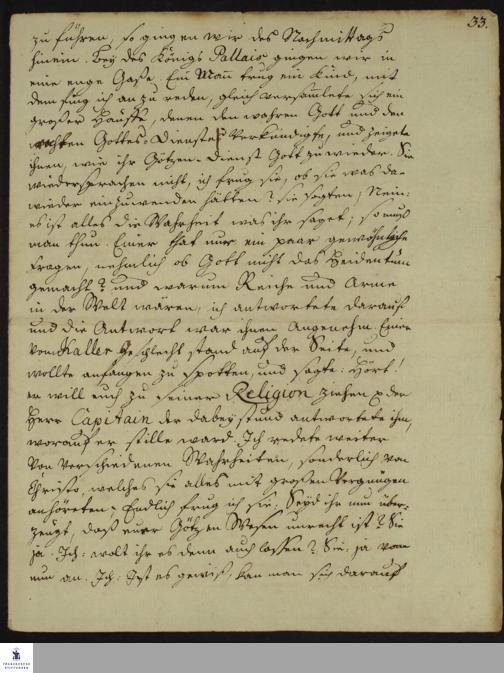 33.
zu führen, so gingen wir des Nachmittags
hinein. Bey des Königs Pallais gingen wir in
eine enge Gaße. Ein Mañ trug ein Kind, mit
dem fing ich an zu reden, gleich versam̃lete sich ein
großer Hauffe, denen den wahren Gott und den
rechten Gottes-Dienst verkündigte, und zeigete
ihnen, wie ihr Götzen-Dienst Gott zuwieder. Sie
wiedersprachen nicht, ich frug sie, ob sie was da-
wieder einzuwenden hätten? sie sagten, Nein:
es ist alles die Wahrheit was ihr saget, so muß
man thun. Einer that nur ein paar gewöhnliche
Fragen, nehmlich ob Gott nicht das Heidentum
gemacht? und warum Reiche und Arme
in der Welt wären, ich antwortete darauf
und die Antwort war ihnen Angenehm. Einer
vom Kaller Geschlecht stand auf der Seite, und
wollte anfangen zu spotten, und sagte: Hört!
er will euch zu seiner Religion ziehen der
Herr Capitain der dabey stund antwortete ihm,
worauf er stille ward. Ich redete weiter
von verschiedenen Wahrheiten, sonderlich von
Christo, welches sie alles mit großen Vergnügen
anhöreten. Endlich frug ich sie: Seyd ihr nun über-
zeugt, daß euer Götzen Wesen unrecht ist? Sie
ja. Ich: wolt ihr es denn auch lassen? Sie, ja von
nun an. Ich: Ist es gewiß, kan man sich darauf
FRANCKESCHE
STIFTUNGEN